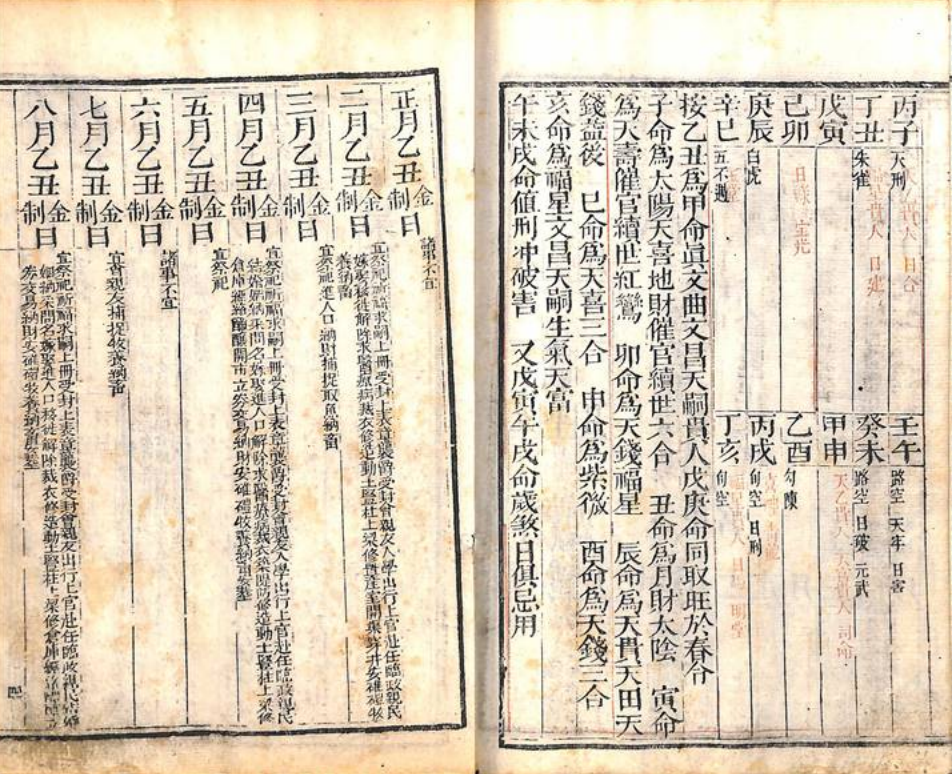 丙子 天刑 日合
丁丑 朱雀 日建
戊寅
己卯
庚辰 白虎
辛巳 五不遇
壬午 路空 天牢 日害
癸未 路空 日破 元武
甲申 天乙貴人 司命
乙酉 勾陳
丙戌 旬空 日刑
丁亥 旬空 明堂
按乙丑爲甲命眞文曲文昌天嗣貴人戊庚命同取旺於春合
子命爲太陽天喜地財催官續世六合 丑命爲月財太陰 寅命
爲天壽催官續世紅鸞 卯命爲天錢福星 辰命爲天貴天田天
錢益後 巳命爲天喜三合 申命爲紫微 酉命爲天錢三合
亥命爲福星文昌天嗣生氣天富
午未戌命値刑冲破害 又戊寅午戌命歲煞日俱忌用
正月乙丑金制日 諸事不宜
二月乙丑金制日 宜祭祀祈福求嗣上冊受封上表章襲爵受封會親友入學出行上官赴任臨政親民
結婚姻納采問名嫁娶移徙解除求醫療病裁衣修造動土豎柱上梁修置產室開渠穿井安碓磑牧
養納畜
三月乙丑金制日 宜祭祀進人口納財捕捉取魚納畜
四月乙丑金制日 宜祭祀祈福求嗣上冊受封上表章襲爵受封會親友入學出行上官赴任臨政親民
結婚姻納采問名嫁娶進人口解除求醫療病裁衣築隄防修造動土豎柱上梁修
倉庫經絡醞釀開市立券交易納財安碓磑牧養納畜安葬
五月乙丑金制日 宜祭祀
六月乙丑金制日 諸事不宜
七月乙丑金制日 宜會親友捕捉牧養納畜
八月乙丑金制日 宜祭祀祈福求嗣上冊受封上表章襲爵受封會親友出行上官赴任臨政親民結婚
姻納采問名嫁娶進人口移徙解除裁衣修造動土豎柱上梁修倉庫經絡醞釀立
券交易納財安碓磑牧養納畜安葬